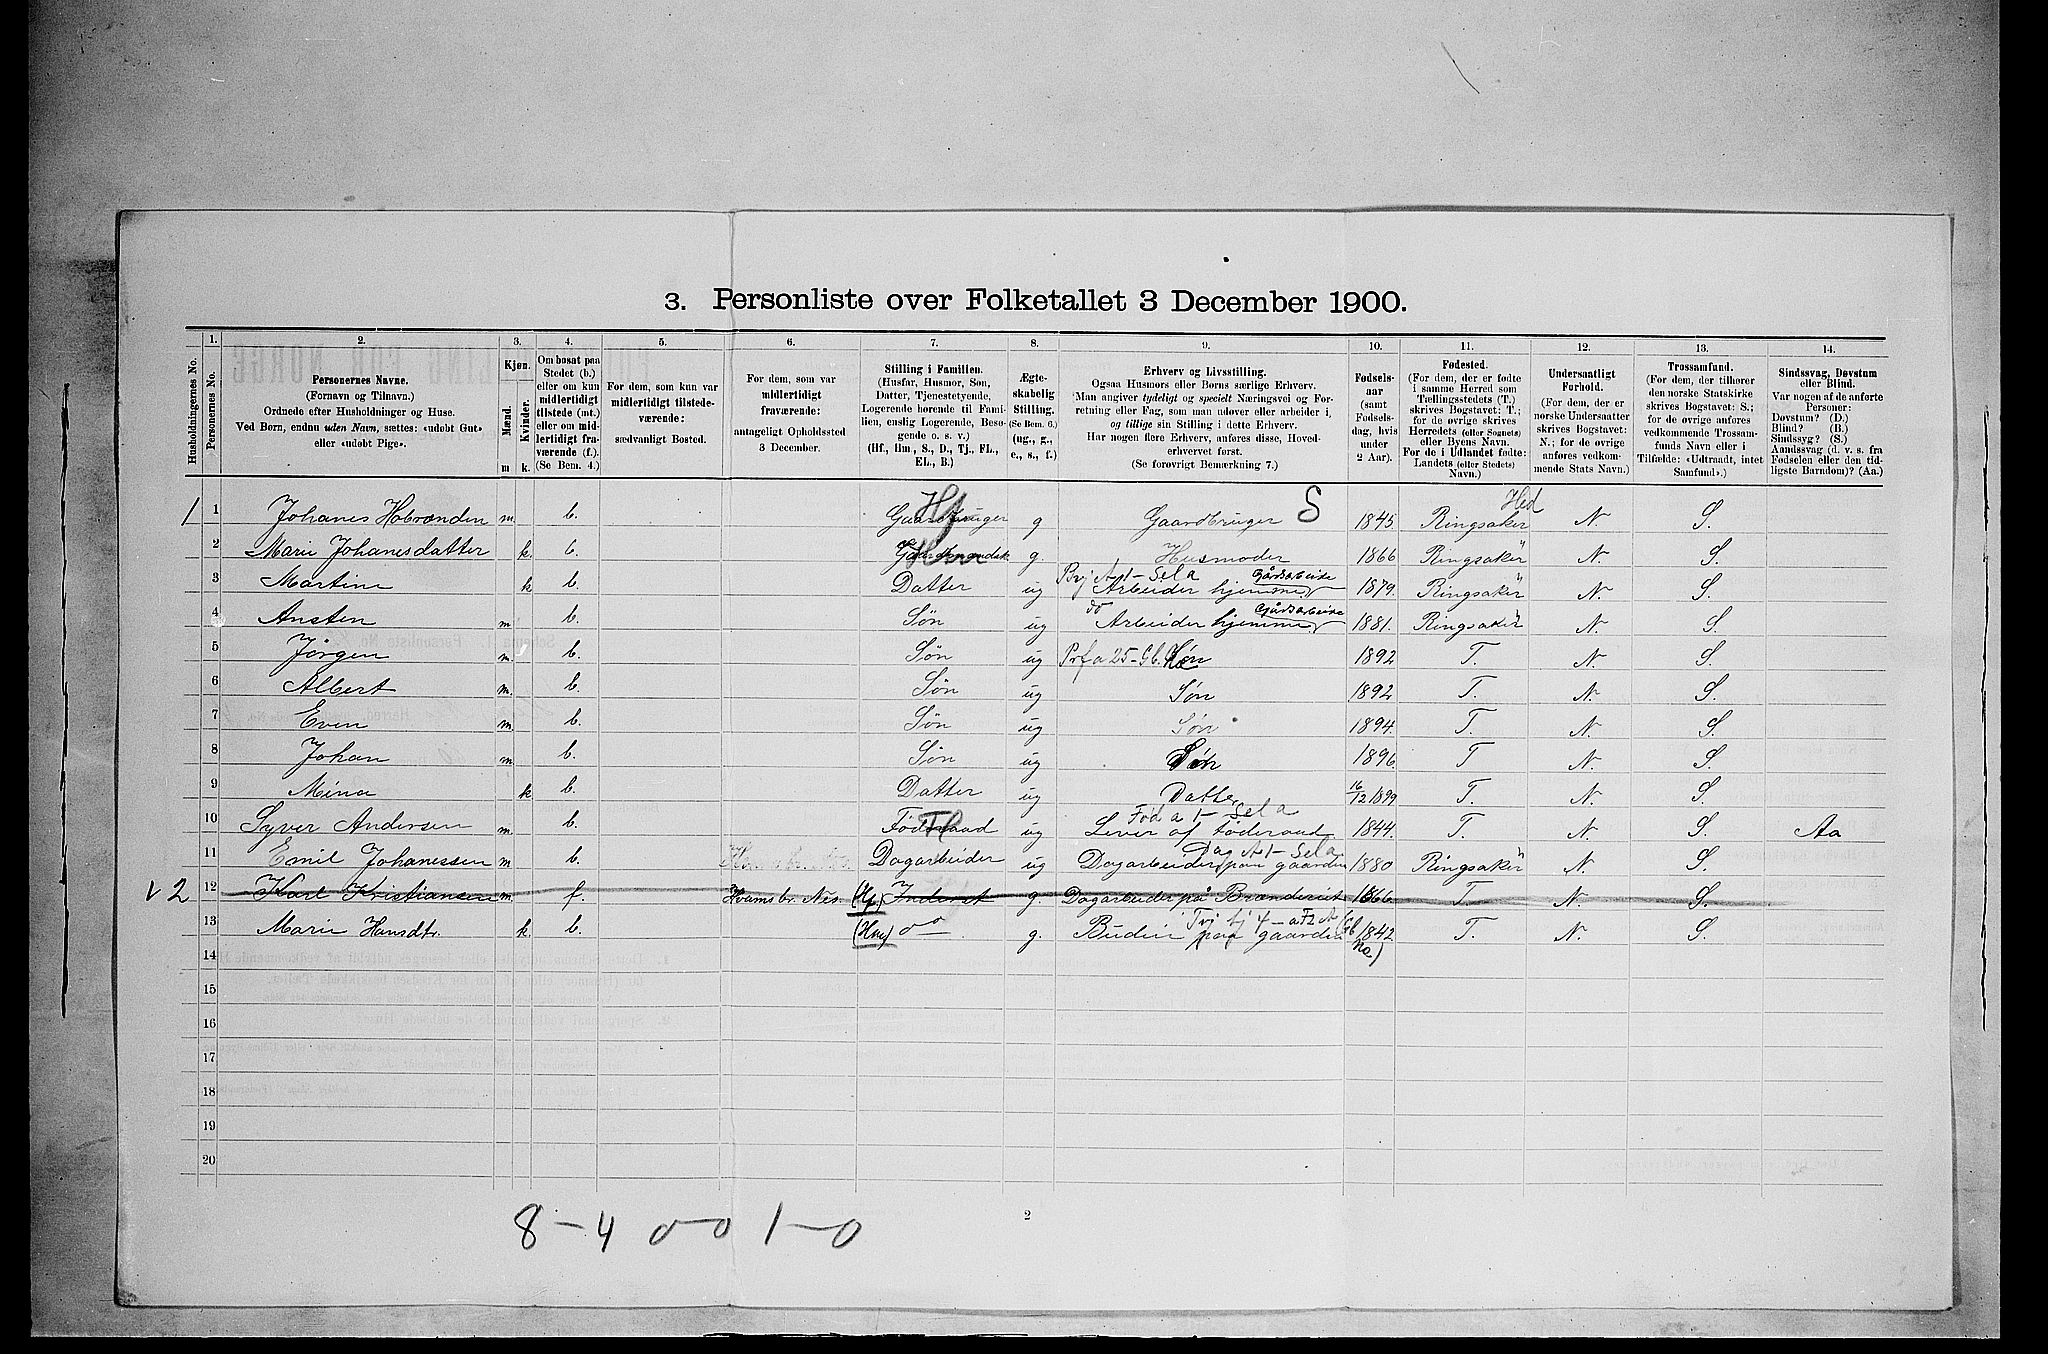 3. Personliste over Folketallet 3 December 1900.
Husholdningernes No.
1.
Personernes No.
2.
Personernes Navne.
(Fornavn og Tilnavn.)
Ordnede efter Husholdninger og Huse.
Ved Børn, endnu uden Navn, sættes: «udøbt Gut»
eller «udøbt Pige».
3.
Kjøn.
Mænd.
Kvinder.
m
k.
4.
Om bosat paa
Stedet (b.)
eller om kun
midlertidigt
tilstede (mt.)
eller om mid-
lertidigt fra-
værende (f.).
(Se Bem. 4.)
5.
For dem, som kun var
midlertidigt tilstede-
værende:
sædvanligt Bosted.
6.
For dem, som var
midlertidigt
fraværende:
antageligt Opholdssted
3 December.
7.
Stilling i Familien.
(Husfar, Husmor, Søn,
Datter, Tjenestetyende,
Logerende hørende til Fami-
lien, enslig Logerende, Besø-
gende o. s. v.)
(Hf., Hm., S., D., Tj., FL.,
EL., B.)
8.
Ægte-
skabelig
Stilling.
(Se Bem. 6.)
(ug., g.,
e., s., f.)
9.
Erhverv og Livsstilling.
Ogsaa Husmors eller Børns særlige Erhverv.
Man angiver tydeligt og specielt Næringsvei og For-
retning eller Fag, som man udøver eller arbeider i,
og tillige sin Stilling i dette Erhverv.
Har nogen flere Erhverv, anføres disse, Hoved-
erhvervet først.
(Se forøvrigt Bemærkning 7.)
10.
Fødsels-
aar
(samt
Fødsels-
dag, hvis
under
2 Aar).
11.
Fødested.
(For dem, der er fødte
i samme Herred som
Tællingsstedets (T.)
skrives Bogstavet: T.;
for de øvrige skrives
Herredets (eller Sognets)
eller Byens Navn.
For de i Udlandet fødte:
Landets (eller Stedets)
Navn.)
12.
Undersaatligt
Forhold.
(For dem, der er
norske Undersaatter
skrives Bogstavet:
N.; for de øvrige
anføres vedkom-
mende Stats Navn.)
13.
Trossamfund.
(For dem, der tilhører
den norske Statskirke
skrives Bogstavet: S.;
for de øvrige anføres
vedkommende Trossam-
funds Navn eller i
Tilfælde: «Udtraadt, intet
Samfund».)
14.
Sindssvag, Døvstum
eller Blind.
Var nogen af de anførte
Personer:
Døvstum? (D.)
Blind? (B.)
Sindssyg? (S.)
Aandssvag (d. v. s. fra
Fødselen eller den tid-
ligste Barndom)? (Aa.)
1 1 Johanes Hobrænden m. b. Gaardbruger g Gaardbruger S 1845 Ringsaker Hed N. S.
2 Marie Johanesdatter k. b. g. Husmoder 1866 Ringsaker N. S.
3 Martine k b. Datter ug Arbeider hjemme Gårdsarbeide 1879. Ringsaker N. S.
4 Ansten m. b. Søn ug do Arbeider hjemme Gårdsarbeide 1881. Ringsaker N. S.
5 Jörgen m. b. Søn ug Prf a 25-Gb. 1892 T. N. S.
6 Albert m. b. Søn ug Søn 1892 T. N. S.
7 Even m. b. Søn ug Søn 1894 T. N. S.
8 Johan m. b. Søn ug Søn 1896 T N. S.
9 Mina k b. Datter ug Datter 16/12 1899 T. N. S.
10 Syver Andersen m. b. Føderaad ug Lever af føderaad 1844. T. N S. Aa
11 Emil Johanessen m b. Dagarbeider ug Dagarbeider paa gaarden 1880 Ringsaker N. S.
v 2 12 Karl Kristiansen m. f. Hvamsbr. Nes. (Hf) Inderst g. Dagarbeider på Brænderiet 1866 T N. S.
13 Marie Hansdt. k. b. (Hm) do g. Budeie paa gaarden 1842 T. N. S.
14
15
16
17
18
19
20
8-4 0-0 1-0
2